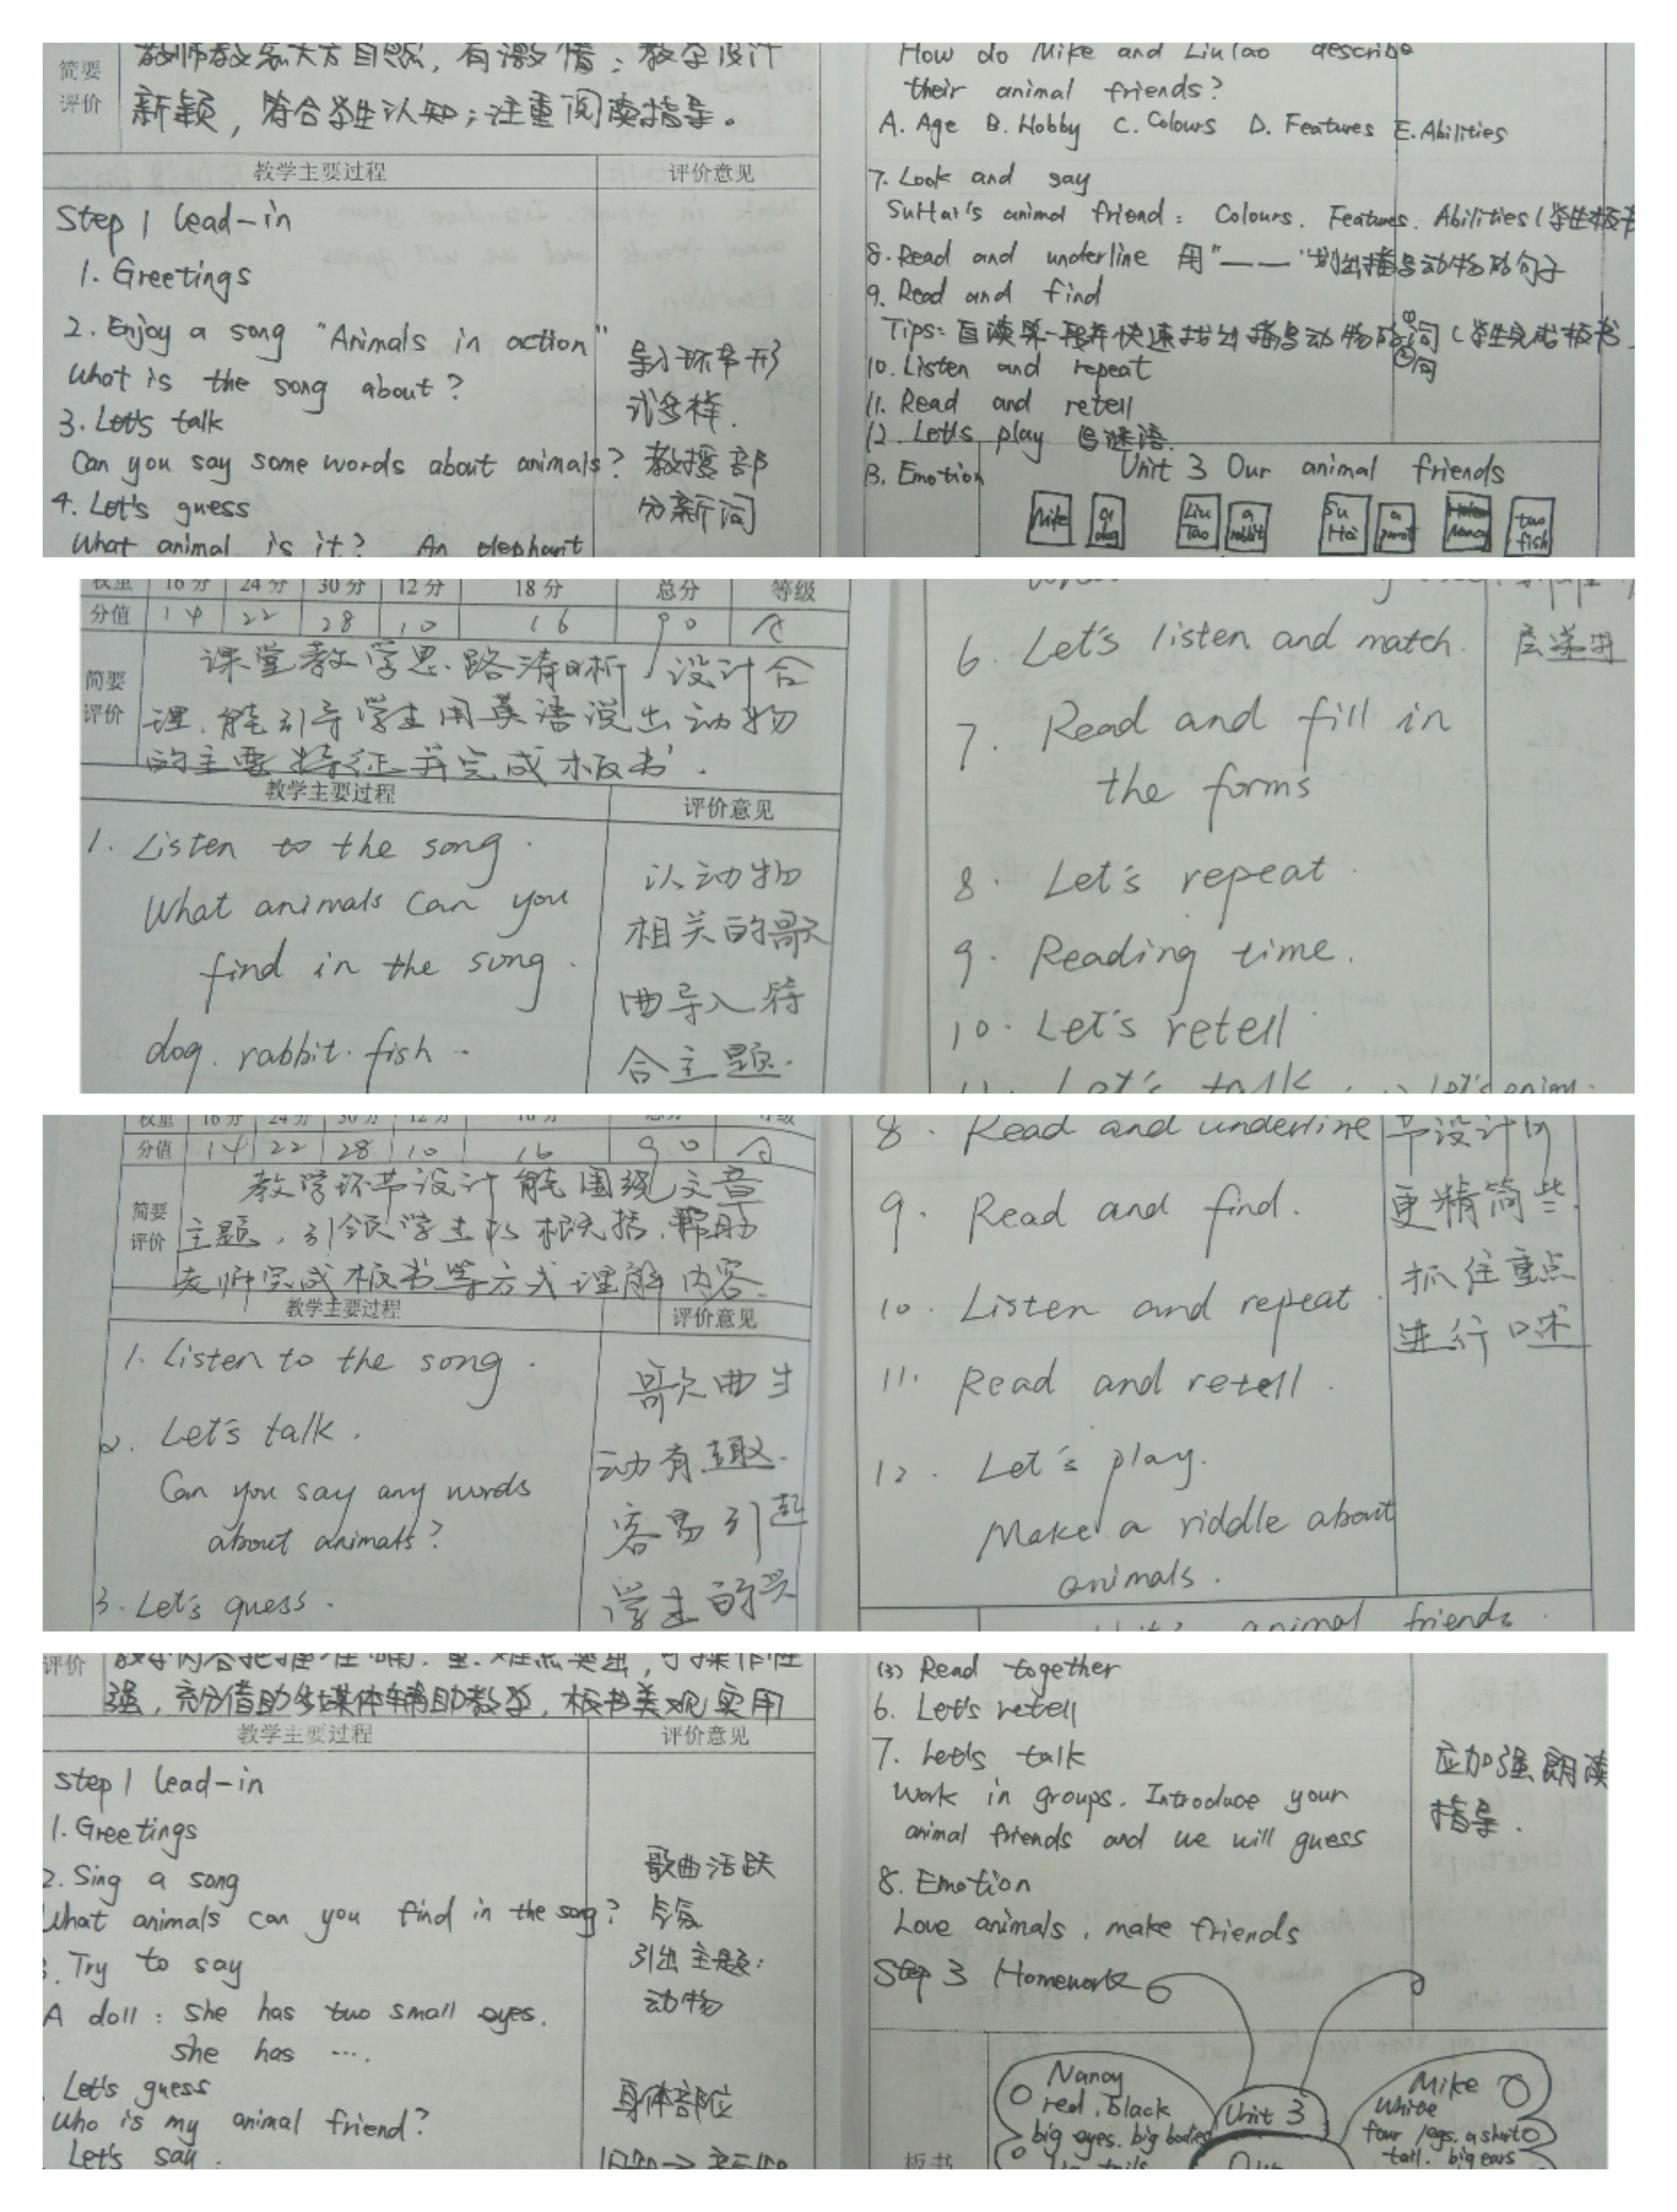 简要
评价
教师教态大方自然，有激情；教学设计
新颖，符合学生认知；注重阅读指导。
教学主要过程
评价意见
Step 1 lead-in
1. Greetings
2. Enjoy a song "Animals in action"
What is the song about?
3. Let's talk
Can you say some words about animals?
4. Let's guess
What animal is it? An elephant
导入环节形
式多样.
教授部
分新词
How do Mike and Liu Tao describe
their animal friends?
A. Age B. Hobby C. Colours D. Features E. Abilities
7. Look and say
Su Hai's animal friend: Colours. Features. Abilities (学生板书
8. Read and underline 用"——"划出描写动物的句子
9. Read and find
Tips: 自读第一段并快速找出描写动物的①词 (学生完成板书
②句
10. Listen and repeat
11. Read and retell
12. Let's play 写谜语.
B. Emotion
Unit 3 Our animal friends
Mike
a dog
Liu Tao
a rabbit
Su Hai
a parrot
Helen
Nancy
two fish
权重 16分 24分 30分 12分 18分 总分 等级
分值 14 22 28 10 16 90 A
简要
评价
课堂教学思路清晰，设计合
理.能引导学生用英语说出动物
的主要特征并完成板书.
教学主要过程
评价意见
1. Listen to the song.
What animals can you
find in the song.
dog. rabbit. fish.
以动物
相关的歌
曲导入符
合主题.
6. Let's listen and match.
7. Read and fill in
the forms
8. Let's repeat.
9. Reading time.
10. Let's retell
11. Let's talk. 12 Let's enjoy.
层递进
权重 16分 24分 30分 12分 18分 总分 等级
分值 14 22 28 10 16 90 A
简要
评价
教学环节设计能围绕文章
主题，引领学生以概括.帮助
老师完成板书等方式理解内容.
教学主要过程
评价意见
1. Listen to the song.
2. Let's talk.
Can you say any words
about animals?
3. Let's guess.
歌曲生
动有趣.
容易引起
学生的兴
8. Read and underline
9. Read and find.
10. Listen and repeat.
11. Read and retell.
12. Let's play.
Make a riddle about
animals.
节设计的
更精简些.
抓住重点
进行口述
animal friends.
评价
教学内容把握准确.重.难点突出，可操作性
强，充分借助多媒体辅助教学，板书美观实用
教学主要过程
评价意见
Step 1 lead-in
1. Greetings
2. Sing a song
What animals can you find in the song?
3. Try to say
A doll: she has two small eyes.
she has ....
Let's guess
Who is my animal friend?
Let's say.
歌曲活跃
气氛
引出主题:
动物
身体部位
(3) Read together
6. Let's retell
7. Let's talk
Work in groups. Introduce your
animal friends and we will guess
8. Emotion
Love animals, make friends
Step 3 Homework
应加强朗读
指导.
板书
Nancy
red, black
big eyes. big bodies
big tails
Unit 3
Our
Mike
white
four legs, a short
tail. big ears